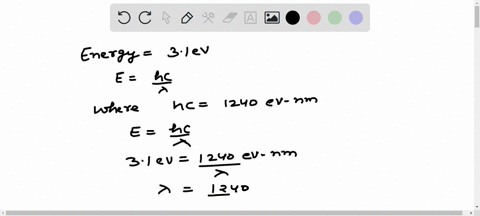 Energy = 3.1 ev
E = hc/λ
where hc = 1240 ev-nm
E = hc/λ
3.1 ev = 1240/λ ev-nm
λ = 1240